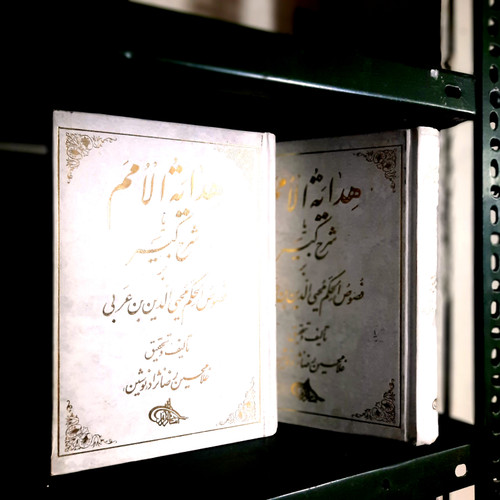 هدایة الأمم
یا
شرح کبیر
بر
فصوص الحکم محیی الدین بن عربی
تألیف و تحقیق
غلامحسین رضانژاد «نوشین»
هدایة الأمم
یا
شرح کبیر
بر
فصوص الحکم محیی الدین بن
تألیف و تحقیق
غلامحسین رضانژاد